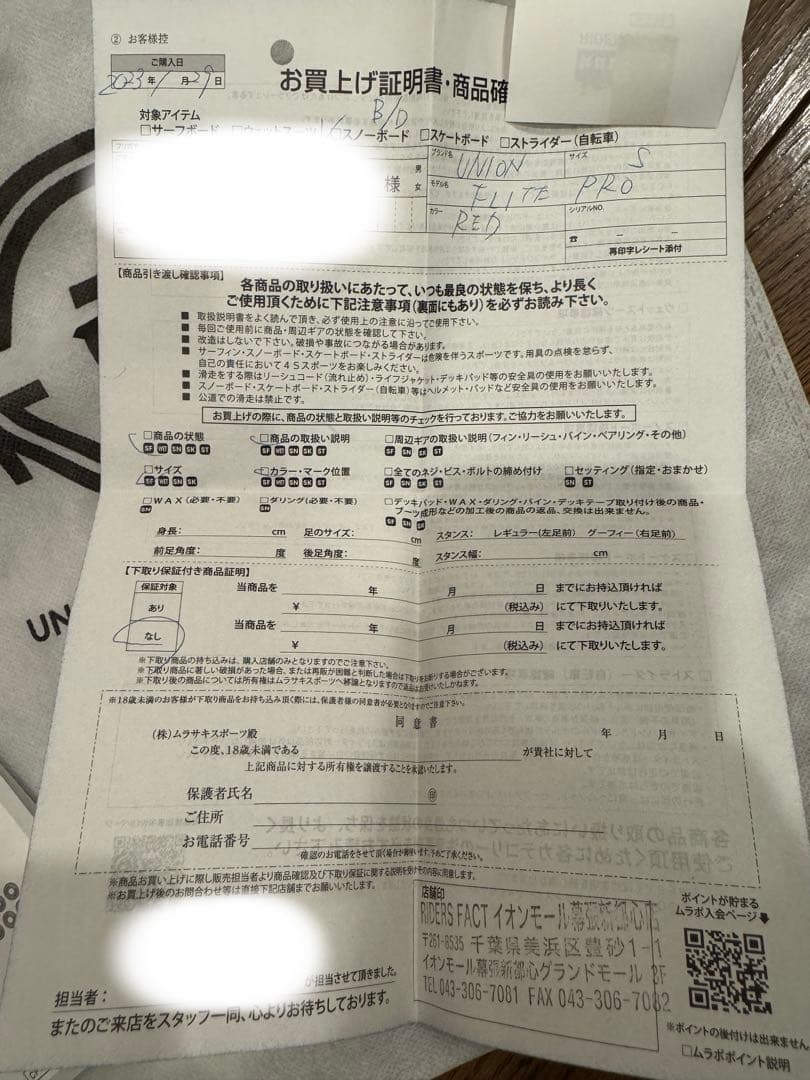 ② お客様控
ご購入日
2023年 1月 29日
お買上げ証明書・商品確
対象アイテム
B/D
□サーフボード □ウェットスーツ □スノーボード □スケートボード □ストライダー（自転車）
様 男 女
ブランド名 UNION サイズ S
モデル名 FLITE PRO
カラー RED シリアルNO.
☎ － －
再印字レシート添付
【商品引き渡し確認事項】
各商品の取り扱いにあたって、いつも最良の状態を保ち、より長く
ご使用頂くために下記注意事項（裏面にもあり）を必ずお読み下さい。
■ 取扱説明書をよく読んで頂き、必ず使用上の注意に沿ってご使用下さい。
■ 毎回ご使用前に商品・周辺ギアの状態を確認して下さい。
■ 改造はしないで下さい。破損や事故につながる場合があります。
■ サーフィン・スノーボード・スケートボード・ストライダーは危険を伴うスポーツです。用具の点検を怠らず、
自己の責任において4Sスポーツをお楽しみください。
■ 滑走をする際はリーシュコード（流れ止め）・ライフジャケット・デッキパッド等の安全具の使用をお願いいたします。
■ スノーボード・スケートボード・ストライダー（自転車）等はヘルメット・パッドなど安全具の使用をお願いいたします。
■ 公道での滑走は禁止です。
お買上げの際に、商品の状態と取扱い説明等のチェックを行っております。ご協力をお願いいたします。
□商品の状態 □商品の取扱い説明 □周辺ギアの取扱い説明（フィン・リーシュ・バイン・ベアリング・その他）
SF WT SN SK ST SF WT SN SK ST SF SN SK ST
□サイズ □カラー・マーク位置 □全てのネジ・ビス・ボルトの締め付け □セッティング（指定・おまかせ）
SF WT SN SK ST SF WT SN SK ST SF SN SK ST SN ST
□WAX（必要・不要） □ダリング（必要・不要） □デッキパッド・WAX・ダリング・バイン・デッキテープ取り付け後の商品・
SN SN ブーツ成形などの加工後の商品の返品、交換は出来ません。
SF SN SK
身長： cm 足のサイズ： cm スタンス： レギュラー（左足前） グーフィー（右足前）
前足角度： 度 後足角度： 度 スタンス幅： cm
【下取り保証付き商品証明】
保証対象
あり
なし
当商品を 年 月 日 までにお持込頂ければ
¥ （税込み） にて下取りいたします。
当商品を 年 月 日 までにお持込頂ければ
¥ （税込み） にて下取りいたします。
※下取り商品の持ち込みは、購入店舗のみとなりますのでご注意下さい。
※下取り商品に著しい破損があった場合、または再販が困難と判断した場合は下取りをお断りする場合がございます。
※下取り後の商品については所有権はムラサキスポーツへ継譲となりますので返品はお受けいたしかねます。
※18歳未満のお客様が下取り商品をお持ち込み頂く際には、保護者様の同意書が必要となりますのでご注意下さい。
同 意 書
（株）ムラサキスポーツ殿 年 月 日
この度、18歳未満である が貴社に対して
上記商品に対する所有権を譲渡することを承認いたします。
保護者氏名 ㊞
ご住所
お電話番号
確認のお電話をさせて頂く場合が御座います。予めご了承ください。
※商品お買い上げに際し販売担当者より商品確認及び下取り保証に関する説明を受けその内容に同意します。
※お買上げ後のお問合わせ等は直接下記店舗までお願いいたします。
店舗印
RIDERS FACT イオンモール幕張新都心店
〒261-8535 千葉県美浜区豊砂1-1
イオンモール幕張新都心グランドモール 3F
TEL 043-306-7081 FAX 043-306-7082
ポイントが貯まる
ムラポ入会ページ
担当者： が担当させて頂きました。
またのご来店をスタッフ一同、心よりお待ちしております。
※ポイントの後付けは出来ません
□ムラポポイント説明
UN